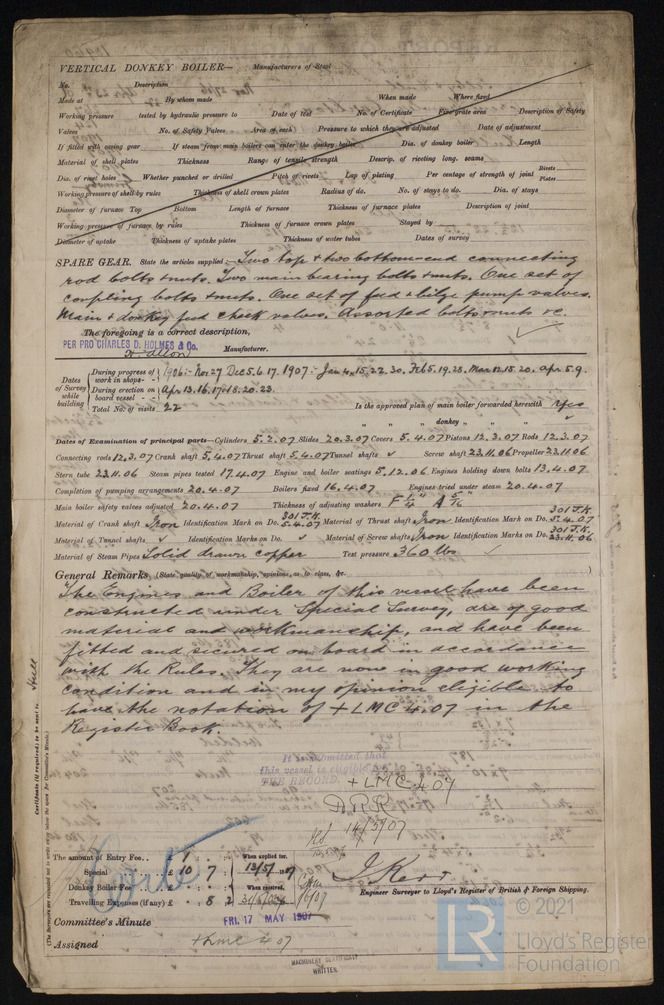 VERTICAL DONKEY BOILER— Manufacturers of Steel
No. Description
Made at By whom made When made Where fixed
Working pressure tested by hydraulic pressure to Date of test No. of Certificate Fire grate area Description of Safety
Valves No. of Safety Valves Area of each Pressure to which they are adjusted Date of adjustment
If fitted with easing gear If steam from main boilers can enter the donkey boiler Dia. of donkey boiler Length
Material of shell plates Thickness Range of tensile strength Descrip. of riveting long. seams
Dia. of rivet holes Whether punched or drilled Pitch of rivets Lap of plating Per centage of strength of joint Rivets Plates
Working pressure of shell by rules Thickness of shell crown plates Radius of do. No. of stays to do. Dia. of stays
Diameter of furnace Top Bottom Length of furnace Thickness of furnace plates Description of joint
Working pressure of furnace by rules Thickness of furnace crown plates Stayed by
Diameter of uptake Thickness of uptake plates Thickness of water tubes Dates of survey
SPARE GEAR. State the articles supplied:— Two top & two bottom-end connecting
rod bolts & nuts. Two main bearing bolts & nuts. One set of
coupling bolts & nuts. One set of feed & bilge pump valves.
Main & donkey feed check valves. Assorted bolts & nuts &c.
The foregoing is a correct description,
PER PRO CHARLES D. HOLMES & Co. Manufacturer.
Dates of Survey while building
During progress of work in shops-- 1906:- Nov 27 Dec 5. 6. 17. 1907:- Jan 4. 15. 22. 30. Feb 5. 19. 28. Mar 12. 15. 20. Apr. 5. 9.
During erection on board vessel --- Apr 13. 16. 17. 18. 20. 23.
Total No. of visits 22 Is the approved plan of main boiler forwarded herewith Yes
" " " donkey " " "
Dates of Examination of principal parts—Cylinders 5.2.07 Slides 20.3.07 Covers 5.4.07 Pistons 12.3.07 Rods 12.3.07
Connecting rods 12.3.07 Crank shaft 5.4.07 Thrust shaft 5.4.07 Tunnel shafts ✓ Screw shaft 23.11.06 Propeller 23.11.06
Stern tube 23.11.06 Steam pipes tested 17.4.07 Engine and boiler seatings 5.12.06 Engines holding down bolts 13.4.07
Completion of pumping arrangements 20.4.07 Boilers fixed 16.4.07 Engines tried under steam 20.4.07
Main boiler safety valves adjusted 20.4.07 Thickness of adjusting washers F 1/4" A 5/16"
Material of Crank shaft Iron Identification Mark on Do. 301 J.K. 5.4.07 Material of Thrust shaft Iron Identification Mark on Do. 301 J.K. 5.4.07
Material of Tunnel shafts ✓ Identification Marks on Do. ✓ Material of Screw shafts Iron Identification Marks on Do. 301 J.K. 23.11.06
Material of Steam Pipes Solid drawn copper Test pressure 360 lbs ✓
General Remarks (State quality of workmanship, opinions as to class, &c.
The Engines and Boiler of this vessel have been
constructed under Special Survey, are of good
material and workmanship, and have been
fitted and secured on board in accordance
with the Rules. They are now in good working
condition and in my opinion eligible to
have the notation of + LMC 4.07 in the
Register Book.
It is submitted that
this vessel is eligible for
THE RECORD. + LMC 4.07
14/5/07
The amount of Entry Fee.. £ 1 : : When applied for.
Special £ 10 : 7 : 13/5/1907
Donkey Boiler Fee £ : : When received.
Travelling Expenses (if any) £ : 8 : 2
J. Kerr
Engineer Surveyor to Lloyd's Register of British & Foreign Shipping.
Committee's Minute FRI. 17 MAY 1907
Assigned + LMC 4.07
MACHINERY CERTIFICATE
WRITTEN.
Certificate (if required) to be sent to Hull
(The Surveyors are requested not to write on or below the space for Committee's Minute.)
© 2021
LR
Lloyd's Register
Foundation